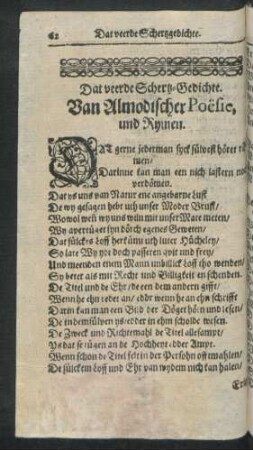 62 Dat veerde Schertzgedichte.
Dat veerde Schertz-Gedichte.
Van Almodischer Poësie,
und Rymen.
DAT gerne jederman syck sülvest höret
Darinne kan man een nich lastern
verdömen.
Dat ys uns van Natur eine angebarne Lust
De wy gesagen hebt uth unser Moder Brust/
Wowol wen wy uns wiln mit unser Mate meten/
Wy averttügt syn dörch egenes Geweten/
Dat sülckes Loff her kumt uth luter Hücheley/
So late Wy yt doch passeren qvit und frey/
Und meenden enem Mann unbillick Laff tho wenden/
Sy beter als mit Recht und Billigkeit en schenden.
De Titel und de Ehr/ de een dem andern gifft/
Wenn he ehn redet an/ eddr wenn he an ehn schrifft
Darin kan man een Bild der Döget hörn und lesen/
De in demsülven ys/ edder in ehm scholde wesen.
De Zweck und Richtemahl de Titel allesampt/
Ys dat se rügen an de Hochheyt edder Ampt.
Wenn schon de Titel seltin der Persohn
De sülckem Loff und Ehr van wydem nich kan halen/